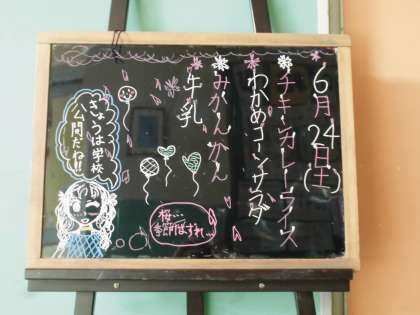 6月24日(土)
チキンカレーライス
わかめコーンサラダ
みかんかん
牛乳
きょうは学校
公開だね!!
桜…
季節はずれ…